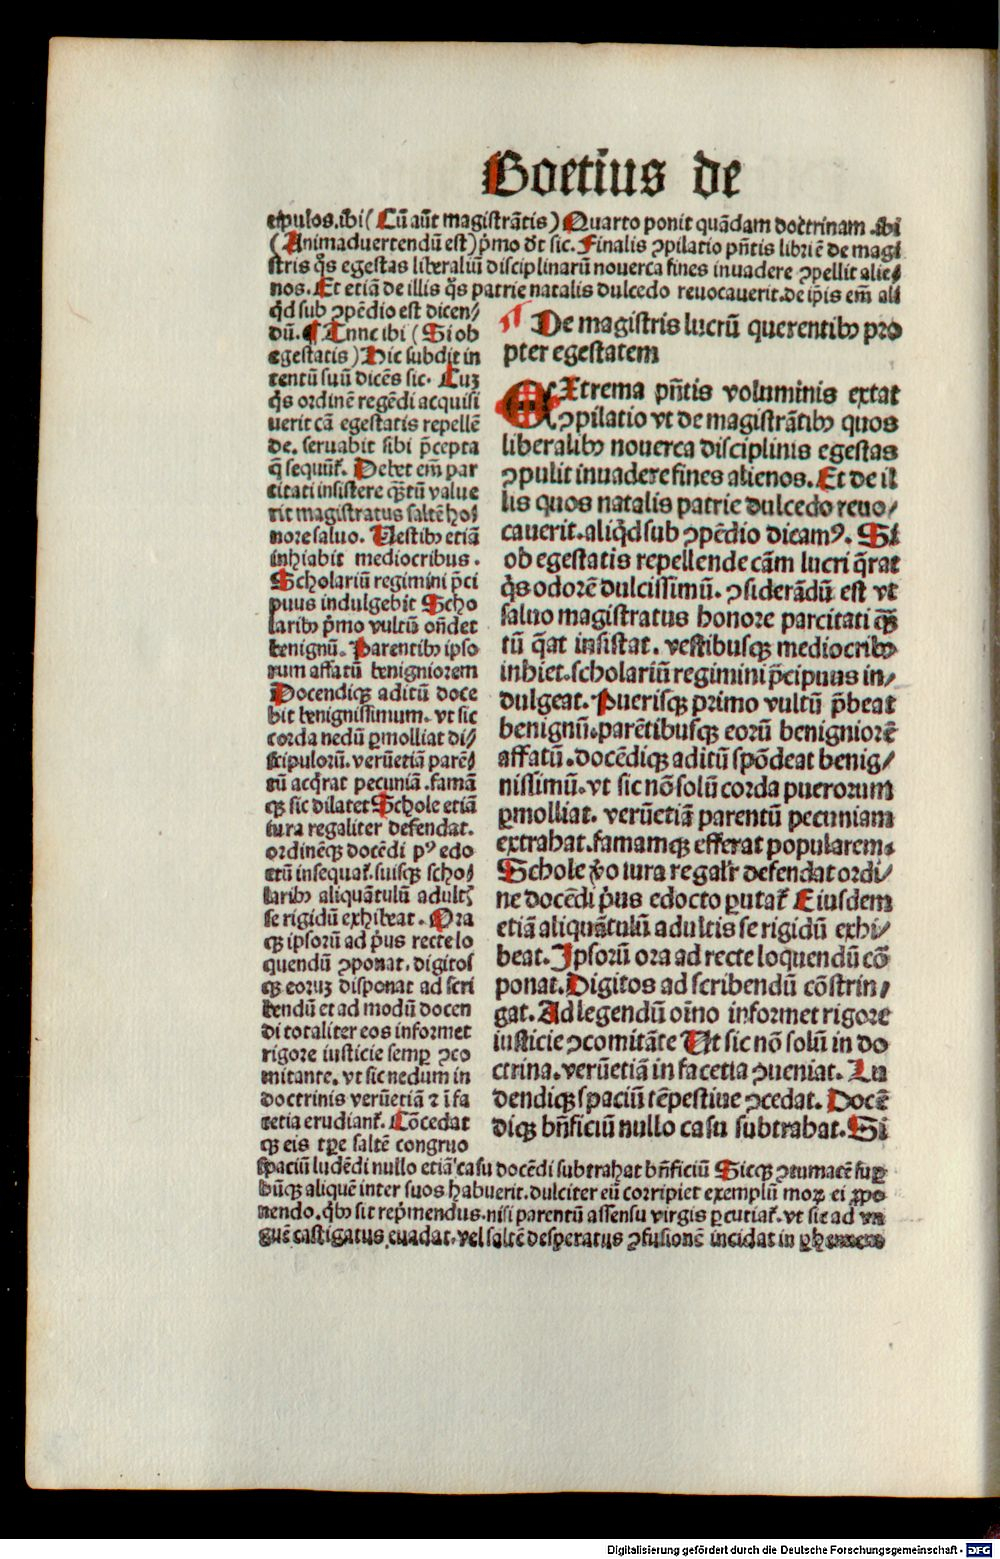 Boetius de
cipulos. ibi (Cū aūt magistrātis) Quarto ponit quādam doctrinam ibi
(Animaduertendū est) p̄mo dt̄ sic. Finalis ꝯpilatio pn̄tis libri ē de magi
stris q̄s egestas liberaliū disciplinarū nouerca fines inuadere ꝯpellit alie/
nos. Et etiā de illis q̄s patrie natalis dulcedo reuocauerit. de ip̄is em̄ ali
qd̄ sub ꝯpēdio est dicen/
dū. ¶ Tunc ibi (Si ob
egestatis) Hic subdit in
tentū suū dicēs sic. Cuꝫ
q̄s ordinē regēdi acquisi
uerit cā egestatis repellē
de. seruabit sibi p̄cepta
q̄ sequūt᷑. Debet em̄ par
citati insistere qꝫtū value
rit magistratus saltē ho/
nore saluo. Uestibꝰ etiā
inhiabit mediocribus.
Scholariū regimini p̄ci
puus indulgebit Scho
laribꝰ p̄mo vultū on̄det
benignū. Parentibꝰ ipso
rum affatū benigniorem
Docendiqꝫ aditū doce
bit benignissimum. vt sic
corda nedū ꝑmolliat di/
scipulorū. verūetiā parē/
tū acq̄rat pecuniā. famā
qꝫ sic dilatet Schole etiā
iura regaliter defendat.
ordinēqꝫ docēdi pꝰ edo
ctū insequat᷑. suisqꝫ scho/
laribꝰ aliquātulū adultꝭ
se rigidū exhibeat. Ora
qꝫ ipsorū ad p̄us recte lo
quendū ꝯponat. digitos
qꝫ eoruꝫ disponat ad scri
bendū et ad modū docen
di totaliter eos informet
rigore iusticie semꝑ ꝯco
mitante. vt sic nedum in
doctrinis verūetiā ⁊ ī fa
cetia erudiant᷑. Cōcedat
qꝫ eis tꝑe saltē congruo
¶ De magistris lucrū querentibꝰ pro
pter egestatem
EXtrema pn̄tis voluminis extat
ꝯpilatio vt de magistrātibꝰ quos
liberalibꝰ nouerca disciplinis egestas
ꝯpulit inuadere fines alienos. Et de il
lis quos natalis patrie dulcedo reuo/
cauerit. aliqd̄ sub ꝯpēdio dicamꝰ. Si
ob egestatis repellende cām lucri q̄rat
q̄s odorē dulcissimū. ꝯsiderādū est vt
saluo magistratus honore parcitati qꝫ
tū q̄at insistat. vestibusqꝫ mediocribꝰ
inhiet. scholariū regimini p̄cipuus in/
dulgeat. Puerisqꝫ primo vultū p̄beat
benignū. parētibusqꝫ eorū benigniorē
affatū. docēdiqꝫ aditū spōdeat benig/
nissimū. vt sic nō solū corda puerorum
ꝑmolliat. verūetiā parentū pecuniam
extrahat. famamqꝫ efferat popularem.
Schole v̄o iura regalr̄ defendat ordi/
ne docēdi p̄us edocto ꝑutat᷑ Eiusdem
etiā aliquātulū adultis se rigidū exhi/
beat. Ipsorū ora ad recte loquendū cō
ponat. Digitos ad scribendū cōstrin/
gat. Ad legendū oīno informet rigore
iusticie ꝯcomitāte Ut sic nō solū in do
ctrina. verūetiā in facetia ꝯueniat. Lu
dendiqꝫ spaciū tēpestiue ꝯcedat. Docē
diqꝫ bn̄ficiū nullo casu subtrahat. Si
spaciū ludēdi nullo etiā casu docēdi subtrahat bn̄ficiū Sicqꝫ ꝯtumacē suꝑ
būqꝫ aliquē inter suos habuerit. dulciter eū corripiet exemplū moꝝ ei ꝓpo
nendo. qbꝰ sit rep̄mendus. nisi parentū assensu virgis ꝑcutiat᷑. vt sic ad vn
guē castigatus euadat. vel saltē desperatus ꝯfusionē incidat in
Digitalisierung gefördert durch die Deutsche Forschungsgemeinschaft - DFG